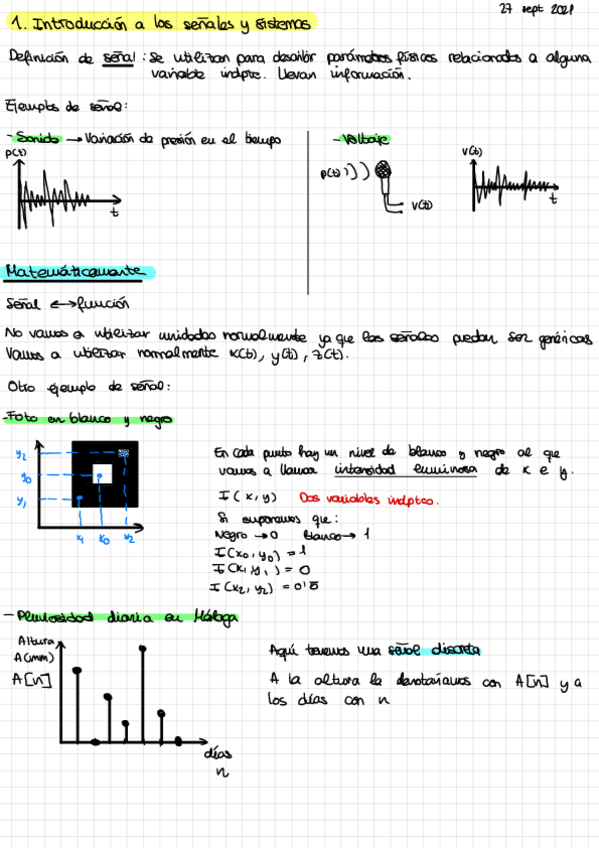 27 sept 2021
1. Introducción a las señales y sistemas
Definición de señal: Se utilizan para describir parámetros físicos relacionados a alguna
variable indpte. Llevan información.
Ejemplos de señal:
- Sonido → Variación de presión en el tiempo
p(t)
t
- Voltaje
p(t)
V(t)
V(t)
t
Matemáticamente
Señal ↔ función
No vamos a utilizar unidades normalmente ya que las señales pueden ser genéricas
Vamos a utilizar normalmente x(t), y(t), z(t).
Otro ejemplo de señal:
- Foto en blanco y negro
y2
y0
y1
x1 x0 x2
En cada punto hay un nivel de blanco y negro al que
vamos a llamar intensidad luminosa de x e y.
I(x,y) Dos variables indptes.
Si suponemos que:
Negro → 0 Blanco → 1
I(x0,y0) = 1
I(x1,y1) = 0
I(x2,y2) = 0'5
- Pluviosidad diaria en Málaga
Altura
A(mm)
A[n]
días
n
Aquí tenemos una señal discreta
A la altura la denotaríamos con A[n] y a
los días con n